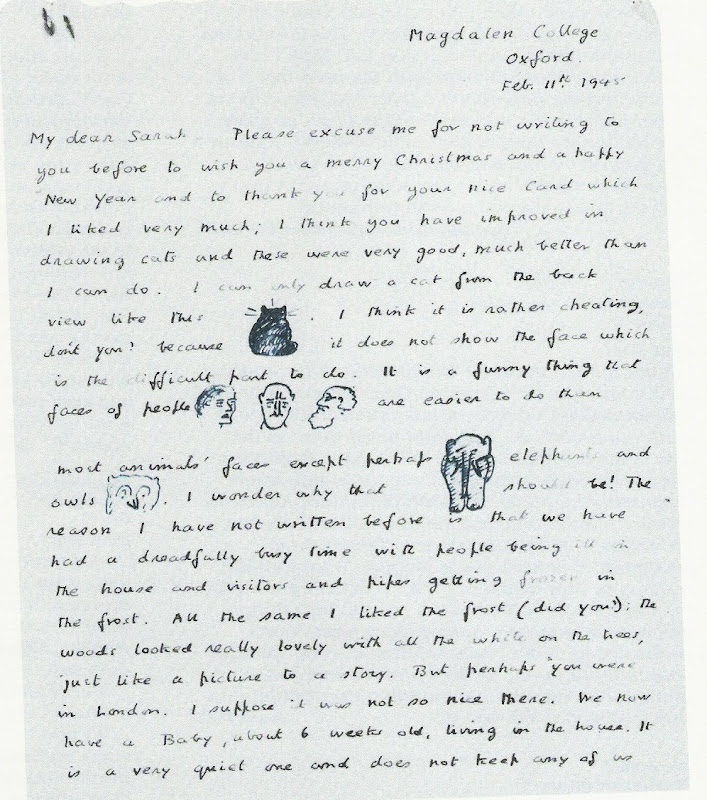 Magdalen College
Oxford.
Feb. 11th 1945
My dear Sarah Please excuse me for not writing to
you before to wish you a merry Christmas and a happy
New Year and to thank you for your nice card which
I liked very much; I think you have improved in
drawing cats and these were very good, much better than
I can do. I can only draw a cat from the back
view like this . I think it is rather cheating,
don't you? because it does not show the face which
is the difficult part to do. It is a funny thing that
faces of people are easier to do than
most animals' faces except perhaps elephants and
owls . I wonder why that should be! The
reason I have not written before is that we have
had a dreadfully busy time with people being ill in
the house and visitors and pipes getting frozen in
the frost. All the same I liked the frost (did you?); the
woods looked really lovely with all the white on the trees,
just like a picture to a story. But perhaps you were
in London. I suppose it was not so nice there. We now
have a Baby, about 6 weeks old, living in the house. It
is a very quiet one and does not keep any of us